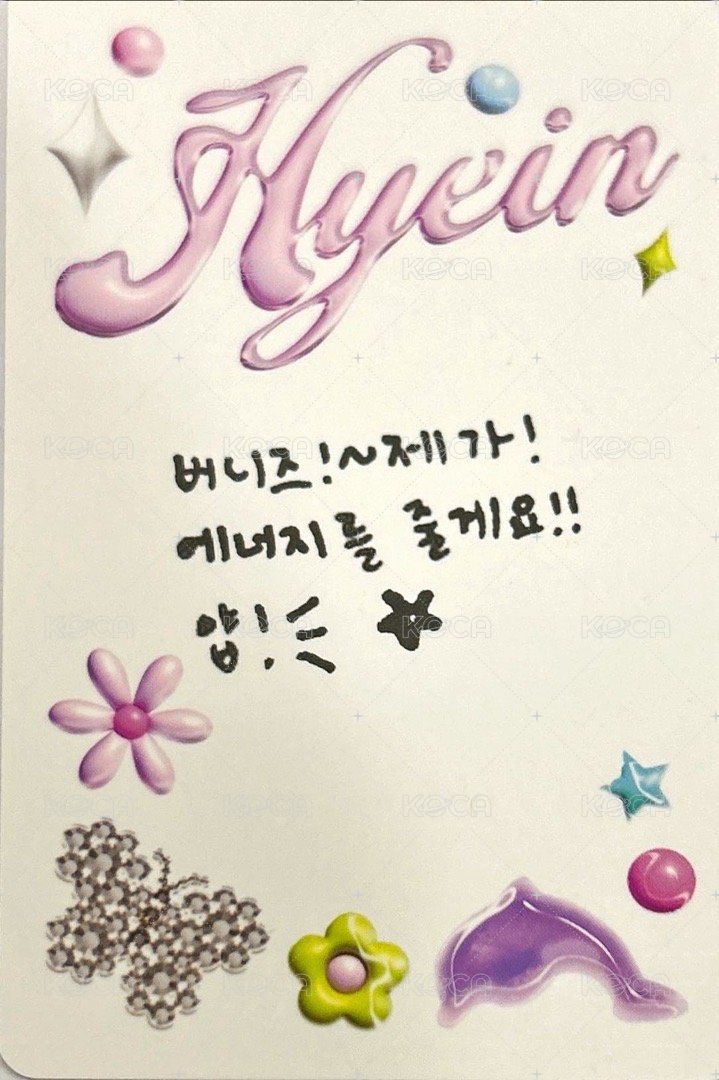 Hyein
버니즈!~제가!
에너지를 줄게요!!
얍!
KOCA